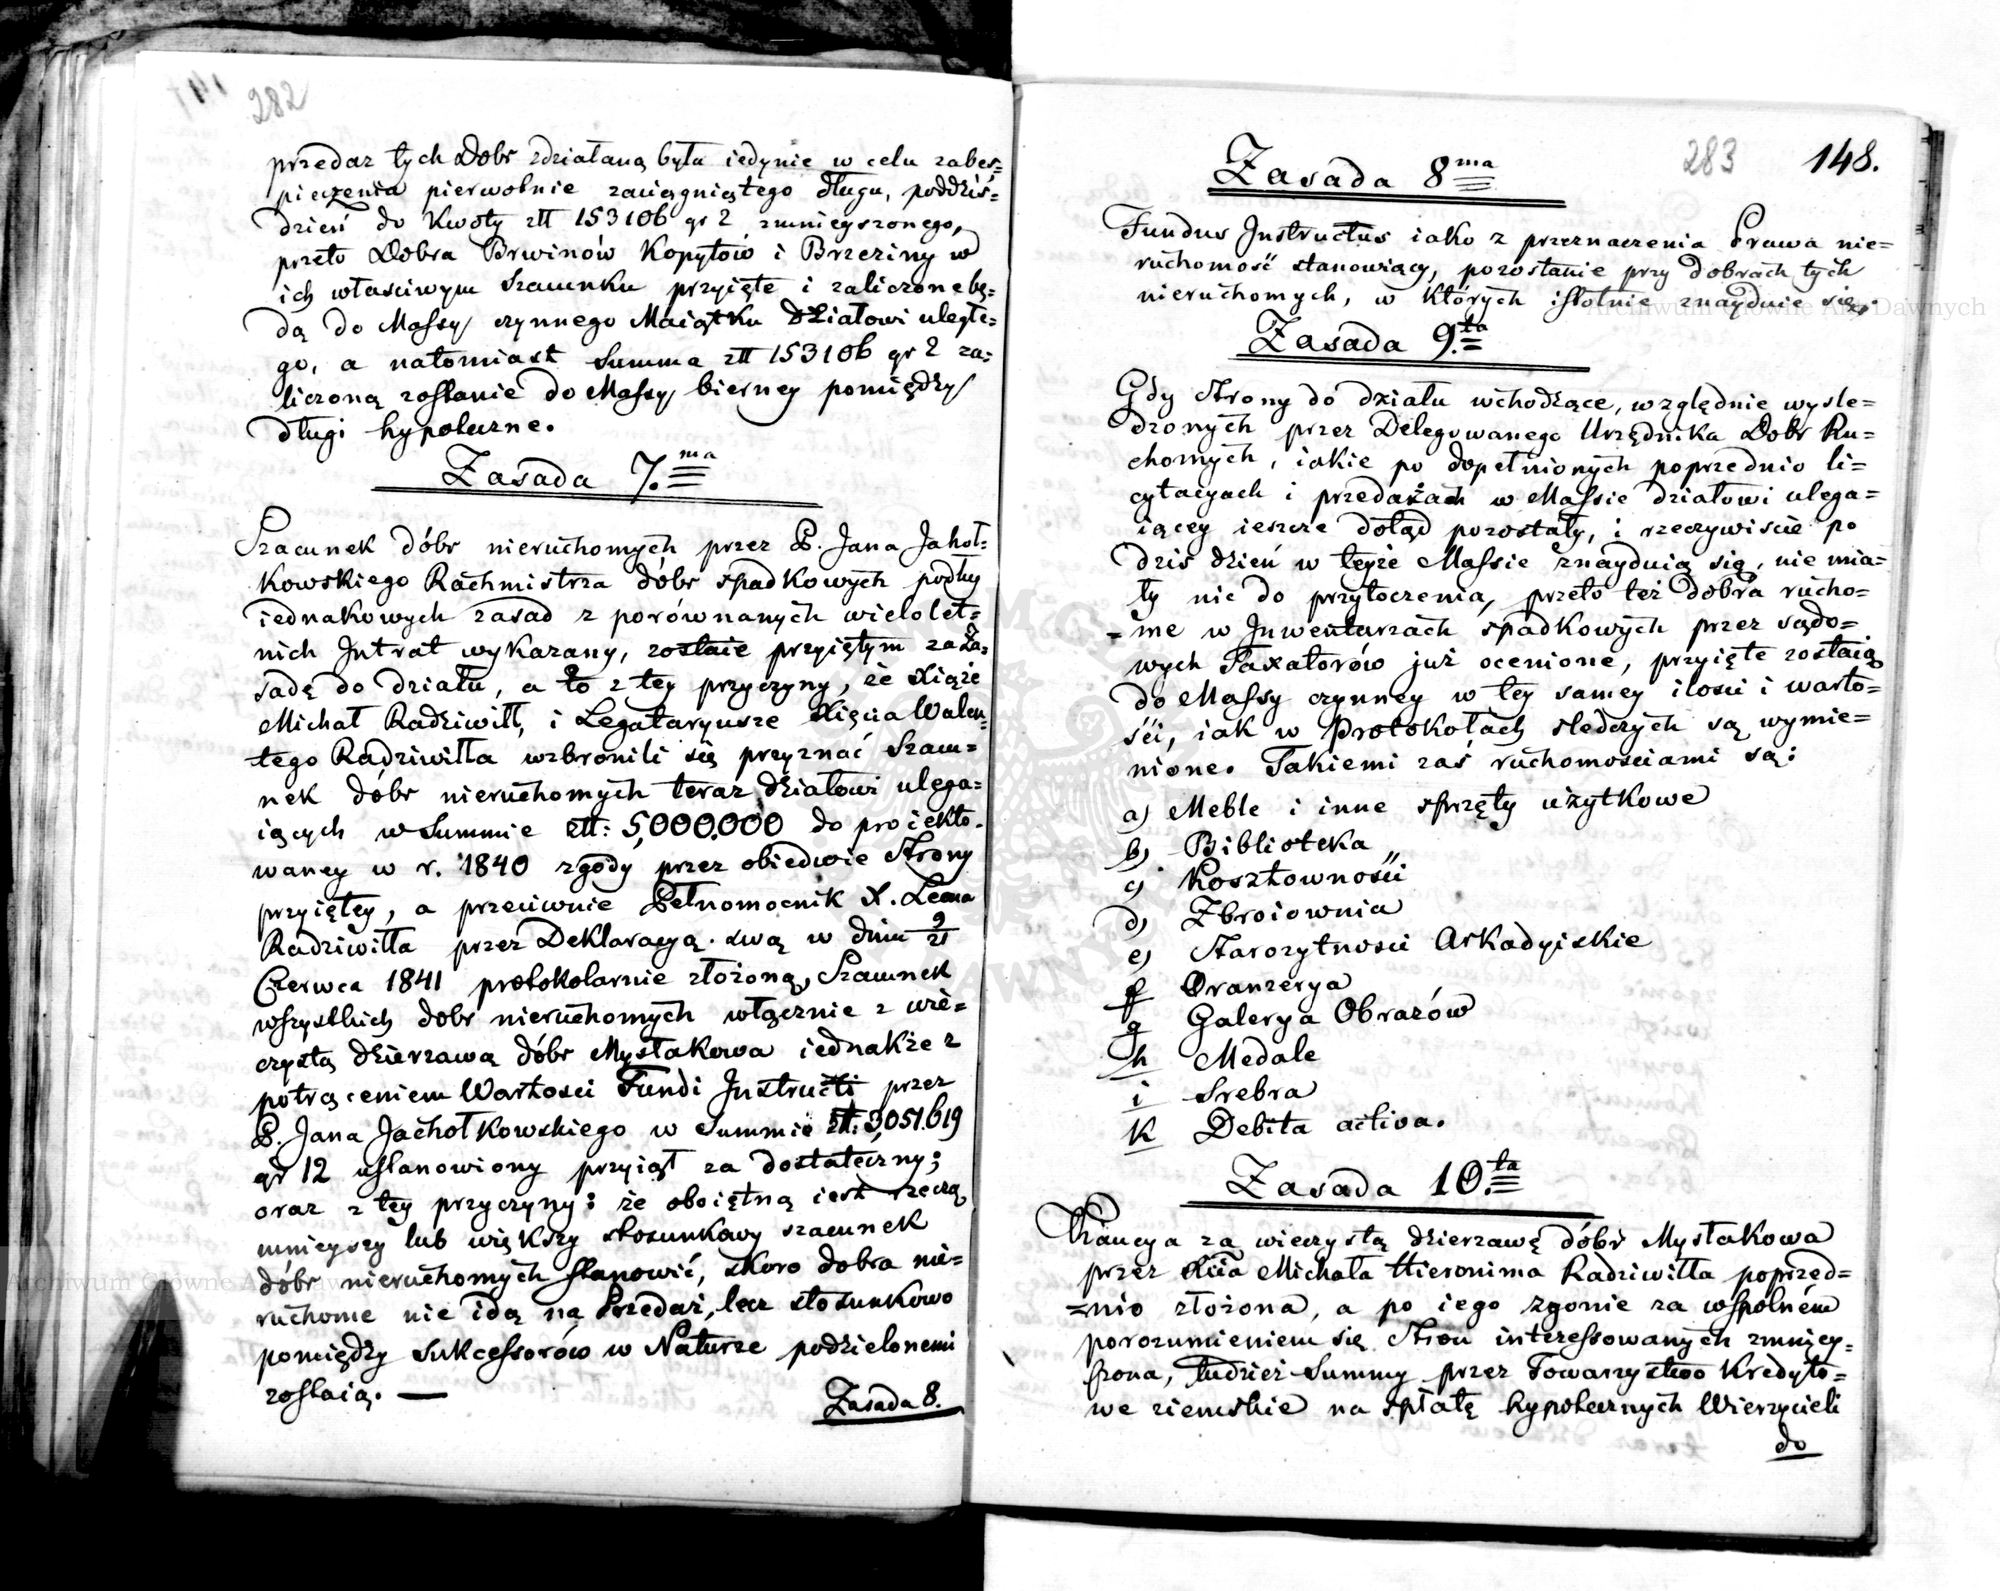 282
przedaz tych Dobr zdziałaną była iedynie w celu zabes=
pieczenia pierwotnie zaciągniętego długu, poddziś=
dzień do Kwoty złł 153106 gr 2 zmnieyszonego,
przeto Dobra Brwinów Kopytów i Brzeziny w
ich właściwym Szacunku przyięte i zaliczone bę=
dą do Massy czynnego Maiątku Działowi uległe=
go, a natomiast Summa złł 153106 gr 2 za=
liczoną zostanie do Massy bierney pomiędzy
długi hypoteczne.
Zasada 7.ma
Szacunek dóbr nieruchomych przez P. Jana Jahoł=
kowskiego Rachmistrza dóbr spadkowych podług
iednakowych zasad z porównanych wielolet=
nich Intrat wykazany, zostaie przyiętym za Za=
sadę do działu, a to z tey przyczyny, że Xiąże
Michał Radziwiłł, i Legataryusze Xięcia Walen=
tego Radziwiłła wzbronili się przyznać Szacu=
nek dóbr nieruchomych teraz działowi ulega=
iących w Summie złł: 5,000,000 do proiekto=
waney w r. 1840 zgody przez obiedwie Strony
przyiętey, a przeciwnie Pełnomocnik X. Leona
Radziwiłła przez Deklaracyą swą w dniu 9/21
Czerwca 1841 protokolarnie złożoną, Szacunek
wszystkich dobr nieruchomych włącznie z wie=
czystą dzierzawą dóbr Mysłakowa iednakże z
potrąceniem Wartosci Fundi Instructi przez
P. Jana Jachołkowskiego w Summie złł: 3,051,619
gr 12 ustanowiony przyiął za dostateczny;
oraz z tey przyczyny: że oboiętną iest rzeczą
mnieyszy lub większy stosunkowy szacunek
dóbr nieruchomych stanowić, skoro dobra nie=
ruchome nie idą na Przedaż, lecz stosunkowo
pomiędzy Sukcessorów w Naturze podzielonemi
zostaią. —
Zasada 8.
283 148.
Zasada 8ma
Fundus Instructus iako z przeznaczenia Prawa nie=
ruchomość stanowiący, pozostanie przy dobrach tych
nieruchomych, w których istotnie znayduie się.
Zasada 9.ta
Gdy Strony do działu wchodzące, względnie wysle=
dzonych przez Delegowanego Urzędnika Dobr Ru=
chomych, iakie po dopełnionych poprzednio li=
cytacyach i przedażach w Massie działowi ulega=
iącey ieszcze dotąd pozostały, i rzeczywiscie po
dzis dzień w teyże Massie znayduią się, nie mia=
ły nic do przytoczenia, przeto też dobra rucho=
=me w Inwentarzach spadkowych przez sądo=
wych Taxatorów już ocenione, przyięte zostaią
do Massy czynney w tey samey ilosci i warto=
ści, iak w Protokołach sledczych są wymie=
nione. Takiemi zaś ruchomościami są:
a) Meble i inne sprzęty użytkowe
b) Biblioteka
c) Kosztowności
d) Zbroiownia
e) Starozytnosci Arkadyiskie
f Oranzerya
g Galerya Obrazów
h Medale
i Srebra
K Debita activa.
Zasada 10.ta
Kaucya za wieczystą dzierzawę dóbr Mysłakowa
przez Xcia Michała Hieronima Radziwiłła poprzed=
=nio złożona, a po iego zgonie za wspolném
porozumieniem się Stron interessowanych zmniey=
szona, tudzież Summy przez Towarzystwo Kredyto=
we ziemskie na spłatę hypotecznych Wierzycieli
do
Archiwum Główne Akt Dawnych